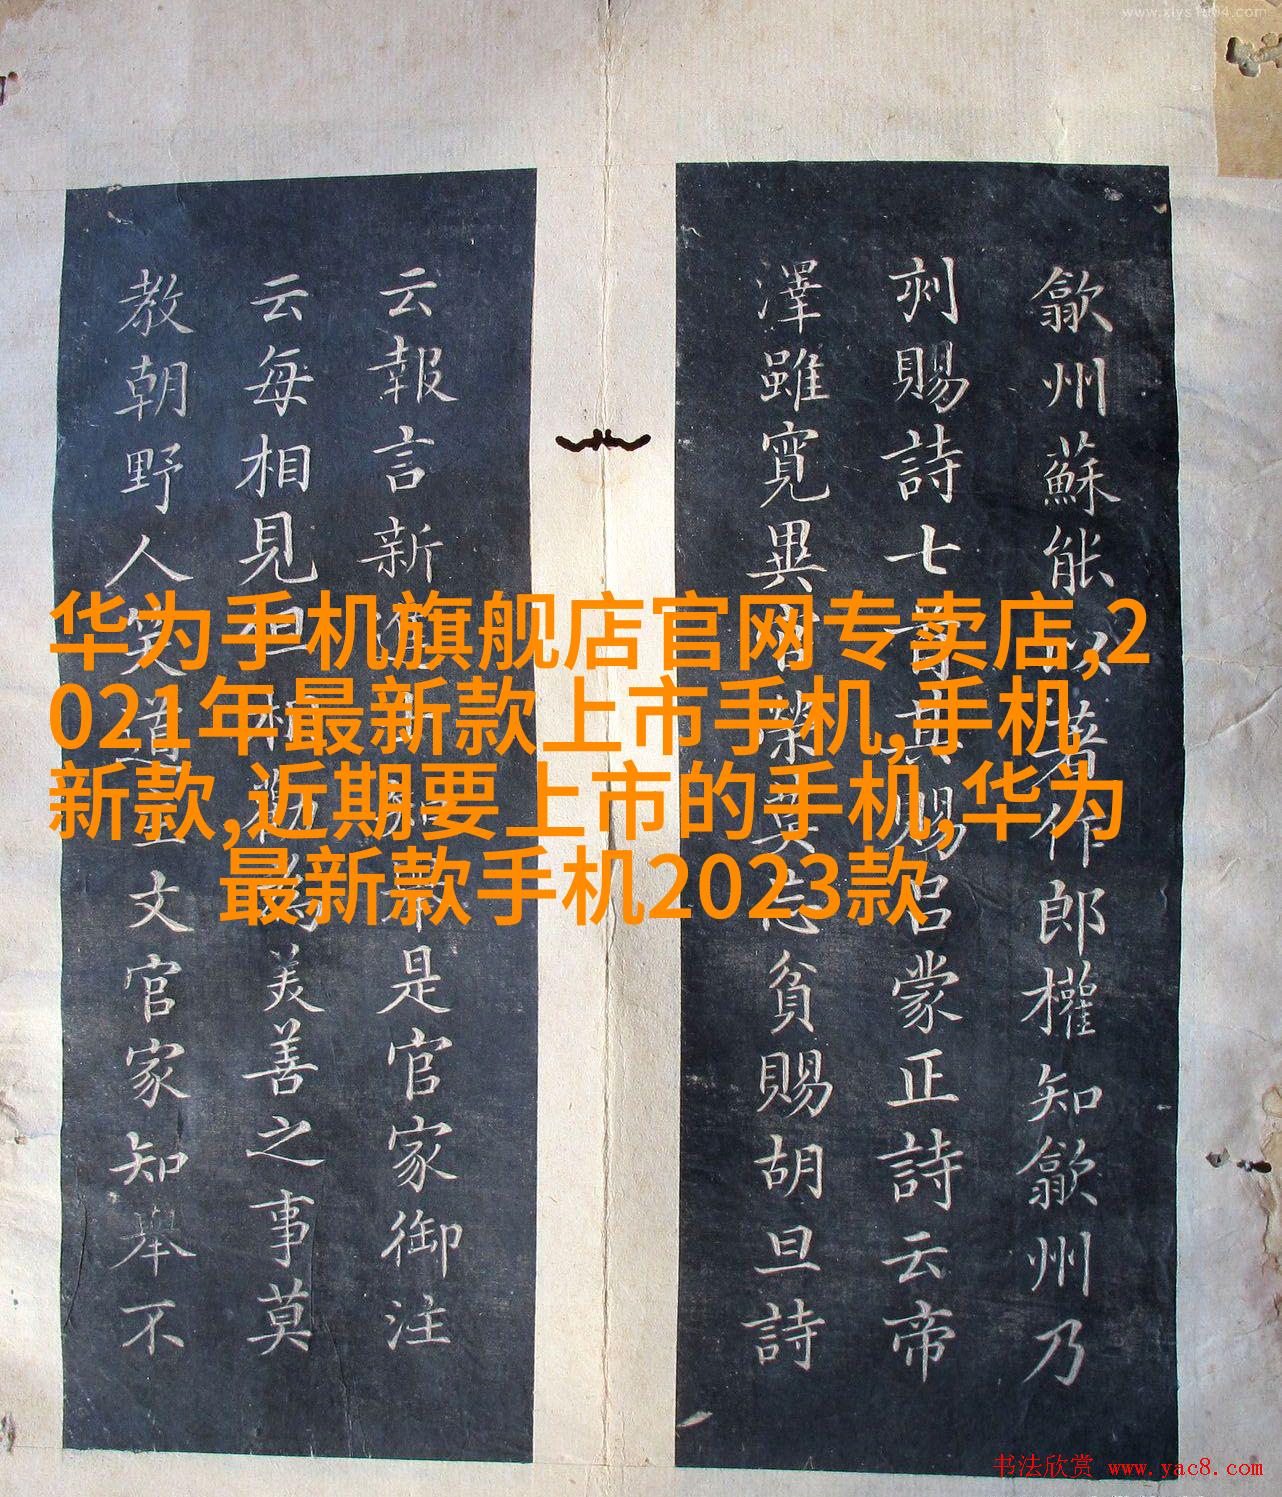 www.xlys1904.com
歙州蘇能以著作郎權知歙州乃
刾賜詩七首其賜呂蒙正詩云帝
澤雖寛異榮莫忘貧賜胡旦詩
云報言新是官家御注
云每相見但相勸為美善之事莫
教朝野人笑道主文官家知舉不
华为手机旗舰店官网专卖店,2
021年最新款上市手机,手机
新款,近期要上市的手机,华为
最新款手机2023款
书法欣赏 www.yac8.com